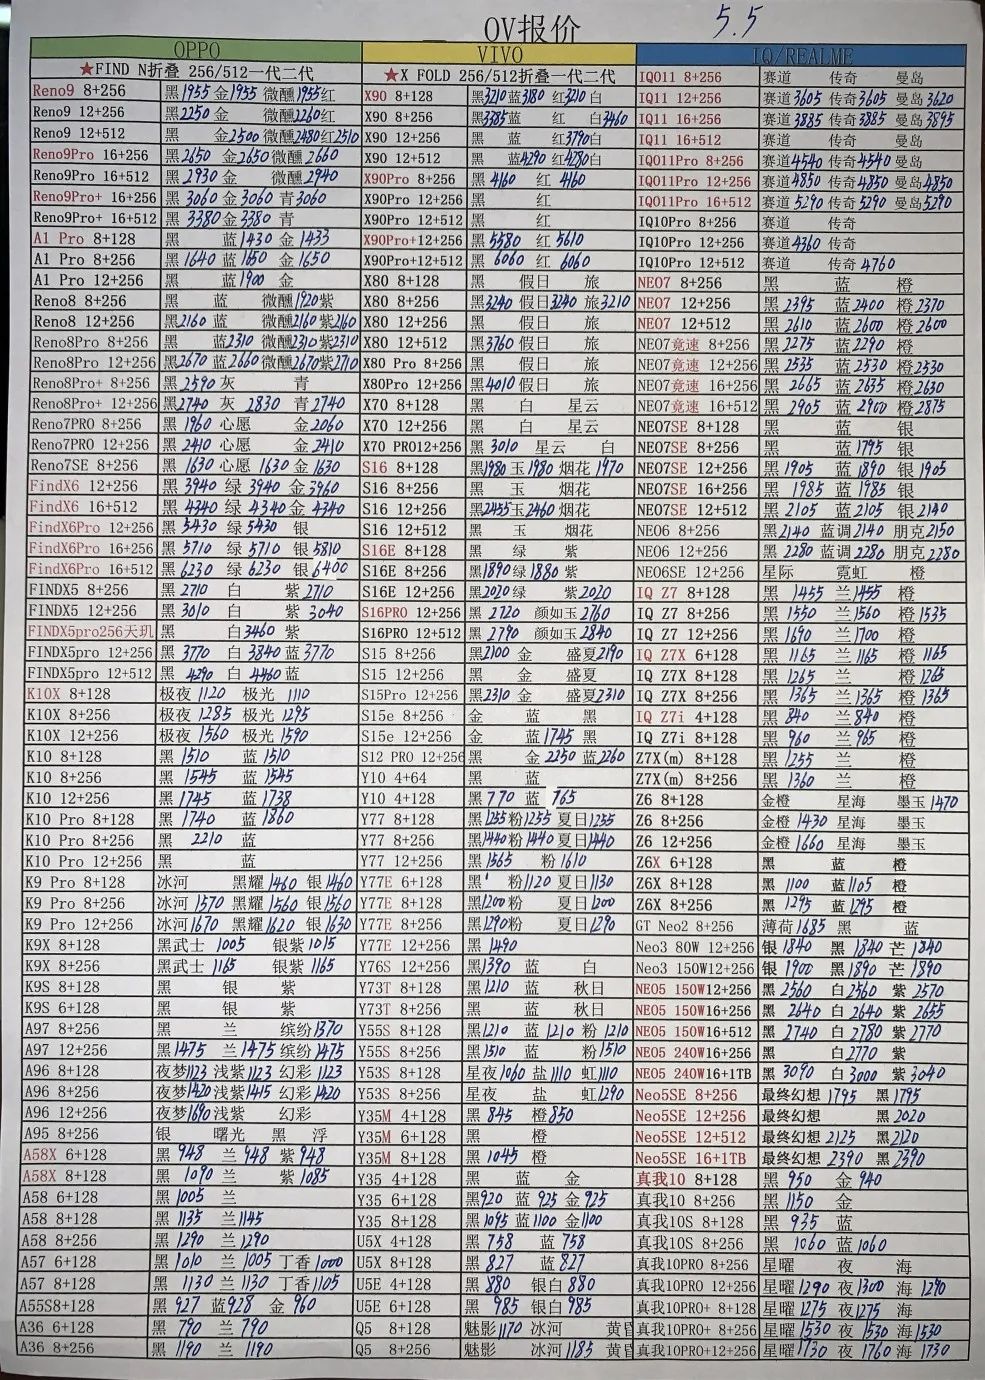 5.5
OV报价
OPPO VIVO IQ/REALME
★FIND N折叠 256/512一代二代 ★X FOLD 256/512折叠一代二代 IQ011 8+256 赛道 传奇 曼岛
Reno9 8+256 黑1955 金1955 微醺1955红 X90 8+128 黑3210 蓝3180 红3210 白 IQ11 12+256 赛道3605 传奇3605 曼岛3620
Reno9 12+256 黑2250 金 微醺2260红 X90 8+256 黑3385蓝 红 白3460 IQ11 16+256 赛道3885 传奇3885 曼岛3895
Reno9 12+512 金2500 微醺2480红2510 X90 12+256 黑 蓝 红3790白 IQ11 16+512 赛道 传奇 曼岛
Reno9Pro 16+256 黑2650 金2650 微醺2660 X90 12+512 黑 蓝4290 红4280白 IQ011Pro 8+256 赛道4540 传奇4540 曼岛
Reno9Pro 16+512 黑2930 金 微醺2940 X90Pro 8+256 黑4160 红4160 IQ011Pro 12+256 赛道4850 传奇4850 曼岛4850
Reno9Pro+ 16+256 黑3060 金3060 青3060 X90Pro 12+256 黑 红 IQ011Pro 16+512 赛道5290 传奇5290 曼岛5290
Reno9Pro+ 16+512 黑3380 金3380 青 X90Pro 12+512 黑 红 IQ10Pro 8+256 赛道 传奇
A1 Pro 8+128 黑 蓝1430 金1433 X90Pro+12+256 黑5580 红5610 IQ10Pro 12+256 赛道4360 传奇
A1 Pro 8+256 黑1640 蓝1650 金1650 X90Pro+12+512 黑6060 红6060 IQ10Pro 12+512 赛道 传奇4760
A1 Pro 12+256 黑 蓝1900 金 X80 8+128 黑 假日 旅 NEO7 8+256 黑 蓝 橙
Reno8 8+256 黑 蓝 微醺1920紫 X80 8+256 黑3240 假日3240 旅3210 NEO7 12+256 黑2395 蓝2400 橙2370
Reno8 12+256 黑2160 蓝 微醺2160紫2160 X80 12+256 黑 假日 旅 NEO7 12+512 黑2610 蓝2600 橙2600
Reno8Pro 8+256 黑 蓝2310 微醺2310紫2310 X80 12+512 黑3760 假日 旅 NEO7竞速 8+256 黑2275 蓝2290 橙
Reno8Pro 12+256 黑2670 蓝2660 微醺2670紫2710 X80 Pro 8+256 黑 假日 旅 NEO7竞速 12+256 黑2535 蓝2530 橙2530
Reno8Pro+ 8+256 黑2590 灰 青 X80Pro 12+256 黑4010 假日 旅 NEO7竞速 16+256 黑2665 蓝2635 橙2630
Reno8Pro+ 12+256 黑2740 灰2830 青2740 X70 8+128 黑 白 星云 NEO7竞速 16+512 黑2905 蓝2900 橙2875
Reno7PRO 8+256 黑1960 心愿 金2060 X70 12+256 黑 白 星云 NEO7SE 8+128 黑 蓝 银
Reno7PRO 12+256 黑2410 心愿 金2410 X70 PRO12+256 黑3010 星云 白 NEO7SE 8+256 黑 蓝1795 银
Reno7SE 8+256 黑1630 心愿1630 金1630 S16 8+128 黑1980 玉1980 烟花1970 NEO7SE 12+256 黑1905 蓝1890 银1905
FindX6 12+256 黑3940 绿3940 金3960 S16 8+256 黑 玉 烟花 NEO7SE 16+256 黑1985 蓝1985 银
FindX6 16+512 黑4340 绿4340 金4340 S16 12+256 黑2455玉2460 烟花 NEO7SE 12+512 黑2105 蓝2105 银2140
FindX6Pro 12+256 黑5430 绿5430 银 S16 12+512 黑 玉 烟花 NEO6 8+256 黑2140 蓝调2140 朋克2150
FindX6Pro 16+256 黑5710 绿5710 银5810 S16E 8+128 黑 绿 紫 NEO6 12+256 黑2280 蓝调2280 朋克2280
FindX6Pro 16+512 黑6230 绿6230 银6400 S16E 8+256 黑1890 绿1880 紫 NEO6SE 12+256 星际 霓虹 橙
FINDX5 8+256 黑2710 白 紫2710 S16E 12+256 黑2020 绿 紫2020 IQ Z7 8+128 黑1455 兰1455 橙
FINDX5 12+256 黑3010 白 紫3040 S16PRO 12+256 黑2720 颜如玉2760 IQ Z7 8+256 黑1550 兰1560 橙1535
FINDX5pro256天玑 黑 白3460 紫 S16PRO 12+512 黑2790 颜如玉2840 IQ Z7 12+256 黑1690 兰1700 橙
FINDX5pro 12+256 黑3770 白3840 蓝3770 S15 8+256 黑2100 金 盛夏2190 IQ Z7X 6+128 黑1165 兰1165 橙1165
FINDX5pro 12+512 黑4290 白4460 蓝 S15 12+256 黑 金 盛夏 IQ Z7X 8+128 黑1265 兰 橙1265
K10X 8+128 极夜1120 极光1110 S15Pro 12+256 黑2310 金 盛夏2310 IQ Z7X 8+256 黑1365 兰1365 橙1365
K10X 8+256 极夜1285 极光1295 S15e 8+256 金 蓝 黑 IQ Z7i 4+128 黑840 兰840 橙
K10X 12+256 极夜1560 极光1590 S15e 12+256 金 蓝1745 黑 IQ Z7i 8+128 黑960 兰965 橙
K10 8+128 黑1510 蓝1510 S12 PRO 12+256 黑 金2250 蓝2260 Z7X(m) 8+128 黑1255 兰 橙
K10 8+256 黑1545 蓝1545 Y10 4+64 黑 蓝 Z7X(m) 8+256 黑1360 兰 橙
K10 12+256 黑1745 蓝1738 Y10 4+128 黑770 蓝765 Z6 8+128 金橙 星海 墨玉1470
K10 Pro 8+128 黑1740 蓝1860 Y77 8+128 黑1255粉1255 夏日1255 Z6 8+256 金橙1430 星海 墨玉
K10 Pro 8+256 黑2210 蓝 Y77 8+256 黑1440粉1440 夏日1440 Z6 12+256 金橙1660 星海 墨玉
K10 Pro 12+256 黑 蓝 Y77 12+256 黑1565 粉1610 Z6X 6+128 黑 蓝 橙
K9 Pro 8+128 冰河 黑耀1460 银1460 Y77E 6+128 黑 粉1120 夏日1130 Z6X 8+128 黑1100 蓝1105 橙
K9 Pro 8+256 冰河1570 黑耀1560 银1560 Y77E 8+128 黑1200粉 夏日1200 Z6X 8+256 黑1295 蓝1295 橙
K9 Pro 12+256 冰河1670 黑耀1620 银1630 Y77E 8+256 黑1290粉 夏日1290 GT Neo2 8+256 薄荷1685 黑 蓝
K9X 8+128 黑武士 1005 银紫1015 Y77E 12+256 黑1490 Neo3 80W 12+256 银1840 黑1840 芒1840
K9X 8+256 黑武士 1165 银紫1165 Y76S 12+256 黑1390 蓝 白 Neo3 150W12+256 银1900 黑1890 芒1890
K9S 8+128 黑 银 紫 Y73T 8+128 黑1210 蓝 秋日 NEO5 150W12+256 黑2560 白2560 紫2570
K9S 6+128 黑 银 紫 Y73T 8+256 黑 蓝 秋日 NEO5 150W16+256 黑2640 白2640 紫2655
A97 8+256 黑 兰 缤纷1370 Y55S 8+128 黑1210 蓝1210 粉1210 NEO5 150W16+512 黑2740 白2780 紫2770
A97 12+256 黑1475 兰1475 缤纷1475 Y55S 8+256 黑1510 蓝 粉1510 NEO5 240W16+256 黑 白2770 紫
A96 8+128 夜梦1123 浅紫1123 幻彩1123 Y53S 8+128 星夜1060 盐1110 虹1110 NEO5 240W16+1TB 黑3090 白3000 紫3040
A96 8+256 夜梦1420浅紫1415 幻彩1420 Y53S 8+256 星夜 盐 虹1290 Neo5SE 8+256 最终幻想1795 黑1795
A96 12+256 夜梦1690浅紫 幻彩 Y35M 4+128 黑845 橙850 Neo5SE 12+256 最终幻想 黑2020
A95 8+256 银 曙光 黑 浮 Y35M 6+128 黑 橙 Neo5SE 12+512 最终幻想2125 黑2120
A58X 6+128 黑948 兰948 紫948 Y35M 8+128 黑1045 橙 Neo5SE 16+1TB 最终幻想2390 黑2390
A58X 8+128 黑1090 兰 紫1085 Y35 4+128 黑 蓝 金 真我10 8+128 黑950 金940
A58 6+128 黑1005 兰 Y35 6+128 黑920 蓝925 金925 真我10 8+256 黑1150 金
A58 8+128 黑1135 兰1145 Y35 8+128 黑1095 蓝1100 金1100 真我10S 8+128 黑935 蓝
A58 8+256 黑1290 兰1290 U5X 4+128 黑758 蓝758 真我10S 8+256 黑1060 蓝1060
A57 6+128 黑1010 兰1005 丁香1000 U5X 8+128 黑827 蓝827 真我10PRO 8+256 星曜 夜 海
A57 8+128 黑1130 兰1130 丁香1105 U5E 4+128 黑880 银白880 真我10PRO 12+256 星曜1290 夜1300 海1290
A55S8+128 黑927 蓝928 金960 U5E 6+128 黑985 银白985 真我10PRO+ 8+128 星曜1275 夜1275 海
A36 6+128 黑790 兰790 Q5 8+128 魅影1170 冰河 黄昏 真我10PRO+ 8+256 星曜1530 夜1530 海1530
A36 8+256 黑1190 兰1190 Q5 8+256 魅影 冰河1185 黄昏 真我10PRO+12+256 星曜1730 夜1760 海1730